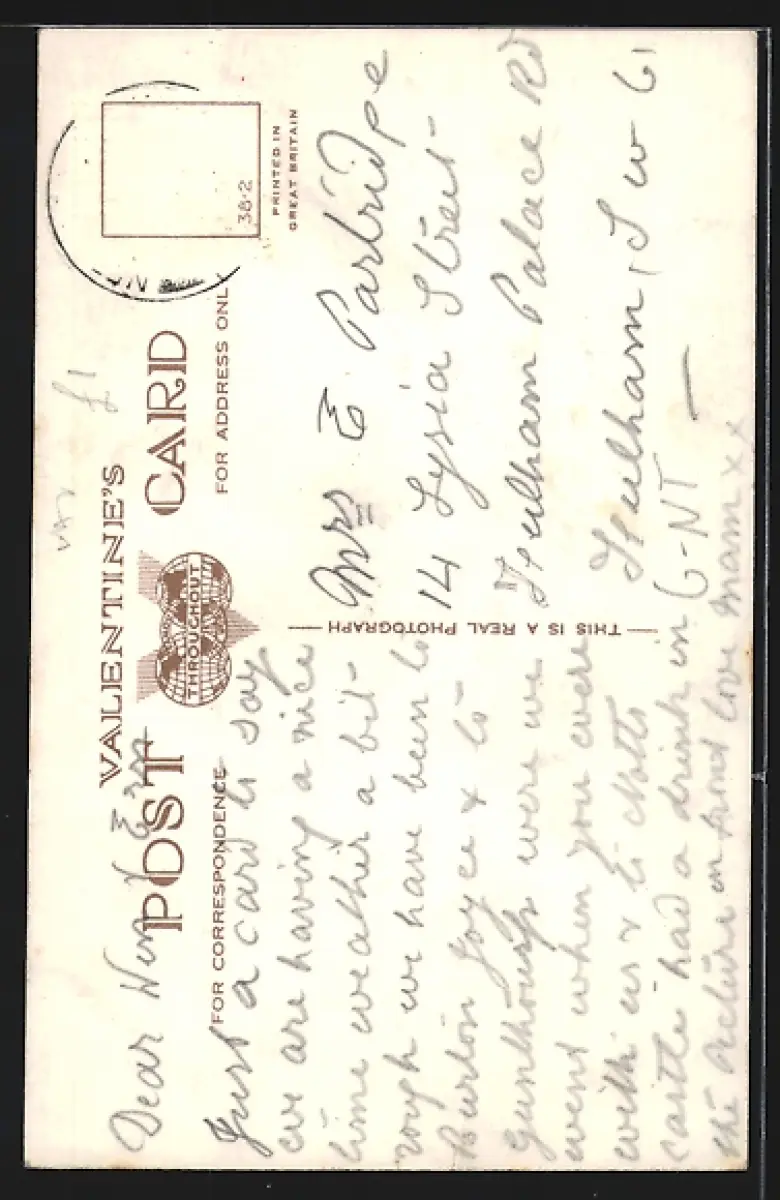 VALENTINE'S
POST CARD
THROUGHOUT
FOR CORRESPONDENCE
FOR ADDRESS ONL
PRINTED IN
GREAT BRITAIN
38-2
£1
THIS IS A REAL PHOTOGRAPH
Dear
Just a card to say
we are having a nice
time weather a bit
rough we have been to
Burton Joyce & to
were we
went when you were
with us & to Notts
castle had a drink in
the picture in front love mam xx
Mrs E Partridge
14 Lysia Street
Fulham Palace Rd
Fulham, S W 6
6-NT